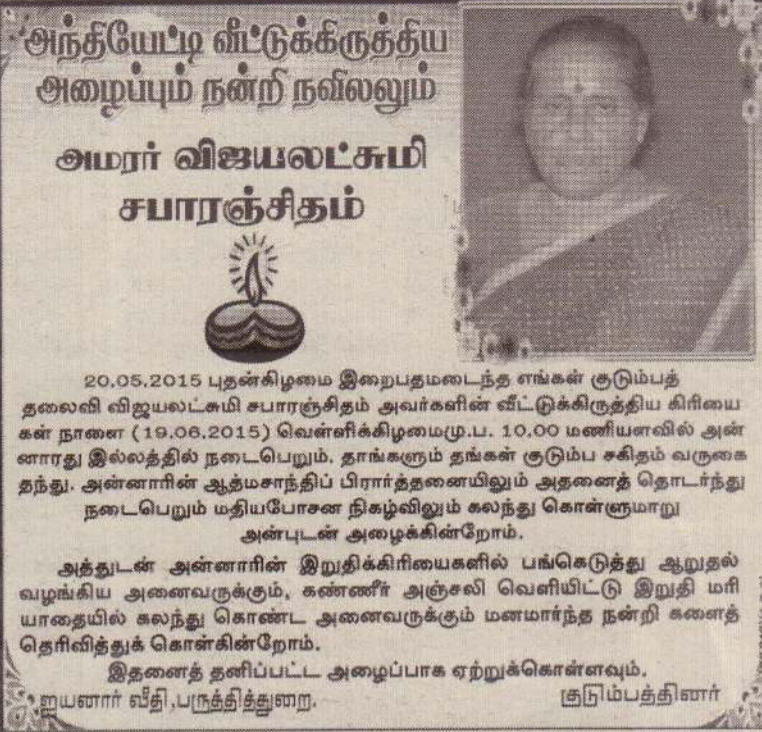 அந்தியேட்டி வீட்டுக்கிருத்திய
அழைப்பும் நன்றி நவிலலும்
அமரர் விஜயலட்சுமி
சபாரஞ்சிதம்
20.05.2015 புதன்கிழமை இறைபதமடைந்த எங்கள் குடும்பத்
தலைவி விஜயலட்சுமி சபாரஞ்சிதம் அவர்களின் வீட்டுக்கிருத்திய கிரியை
கள் நாளை (19.06.2015) வெள்ளிக்கிழமைமு.ப. 10.00 மணியளவில் அன்
னாரது இல்லத்தில் நடைபெறும். தாங்களும் தங்கள் குடும்ப சகிதம் வருகை
தந்து. அன்னாரின் ஆத்மசாந்திப் பிரார்த்தனையிலும் அதனைத் தொடர்ந்து
நடைபெறும் மதியபோசன நிகழ்விலும் கலந்து கொள்ளுமாறு
அன்புடன் அழைக்கின்றோம்.
அத்துடன் அன்னாரின் இறுதிக்கிரியைகளில் பங்கெடுத்து ஆறுதல்
வழங்கிய அனைவருக்கும், கண்ணீர் அஞ்சலி வெளியிட்டு இறுதி மரி
யாதையில் கலந்து கொண்ட அனைவருக்கும் மனமார்ந்த நன்றி களைத்
தெரிவித்துக் கொள்கின்றோம்.
இதனைத் தனிப்பட்ட அழைப்பாக ஏற்றுக்கொள்ளவும்.
ஐயனார் வீதி,பருத்தித்துறை. குடும்பத்தினர்